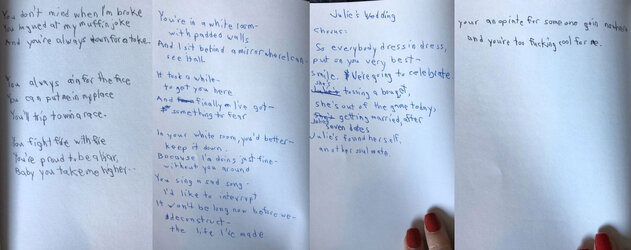 You don't mind when I'm broke
You laughed at my muffin joke
And you're always down for a toke.
You always aim for the face
You can put me in my place
You'll trip to win a race.
You fight fire with fire
You're proud to be a liar,
Baby you take me higher...
You're in a white room-
with padded walls
And I sit behind a mirror where I can-
see it all.
It took a while-
to get you here
And finally I've got-
something to fear
In your white room, you'd better-
keep it down.
Because I'm doing just fine-
without you around
You sing a sad song-
I'd like to interupt
It won't be long now before we-
deconstruct-
the life I've made
Julie's Wedding
Chorus:
So everybody dress in dress,
put on you very best-
smile. We're going to celebrate.
she's
tossing a bouqet,
she's out of the game today,
getting married, after
Julie's
seven dates
Julie's found herself,
another soul mate.
your an opinte for someone goin nowhere
and you're too fucking cool for me.